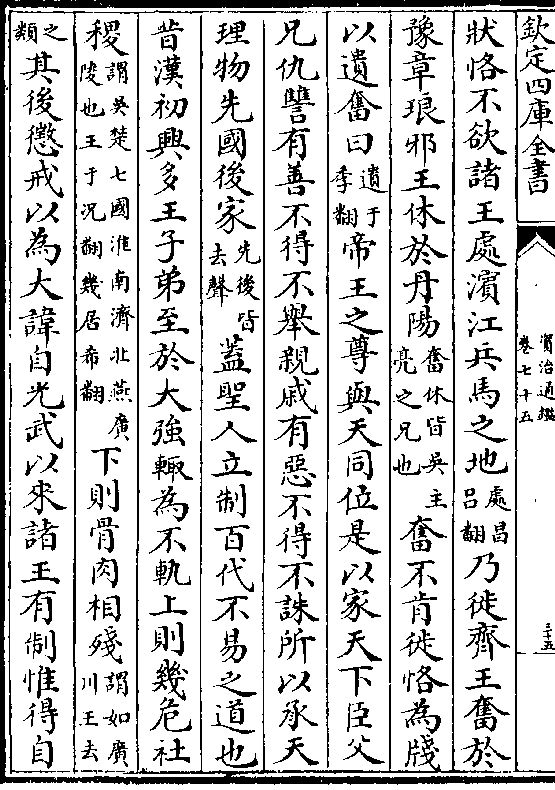 欽定四庫全書
資治通鑑
卷七十五
三十五
狀恪不欲諸王處濱江兵馬之地處昌吕翻乃徙齊王奮於
豫章琅邪王休於丹陽奮休皆吳主亮之兄也奮不肯徙恪為牋
以遺奮曰遺于季翻帝王之尊與天同位是以家天下臣父
兄仇讐有善不得不舉親戚有惡不得不誅所以承天
理物先國後家先後皆去聲蓋聖人立制百代不易之道也
昔漢初興多王子弟至於大強輙為不軌上則幾危社
稷謂吳楚七國淮南濟北燕廣陵也王于況翻幾居希翻下則骨肉相殘謂如廣川王去
之類其後懲戒以為大諱自光武以來諸王有制惟得自